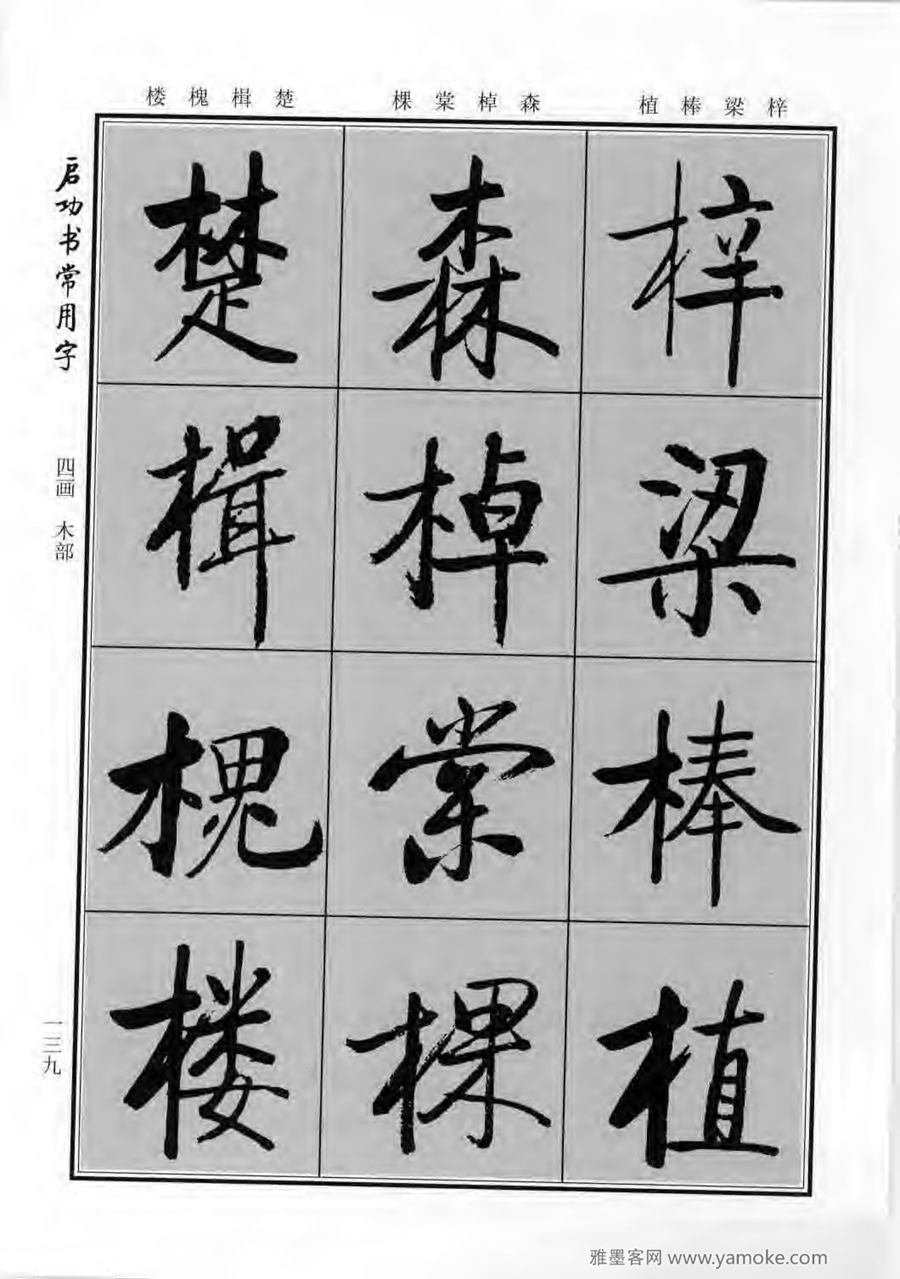 梓梁棒植
森棹棠棵
楚楫槐楼
启功书常用字
四画 木部
一三九
梓
梁
棒
植
森
棹
棠
棵
楚
楫
槐
楼
雅墨客网 www.yamoke.com